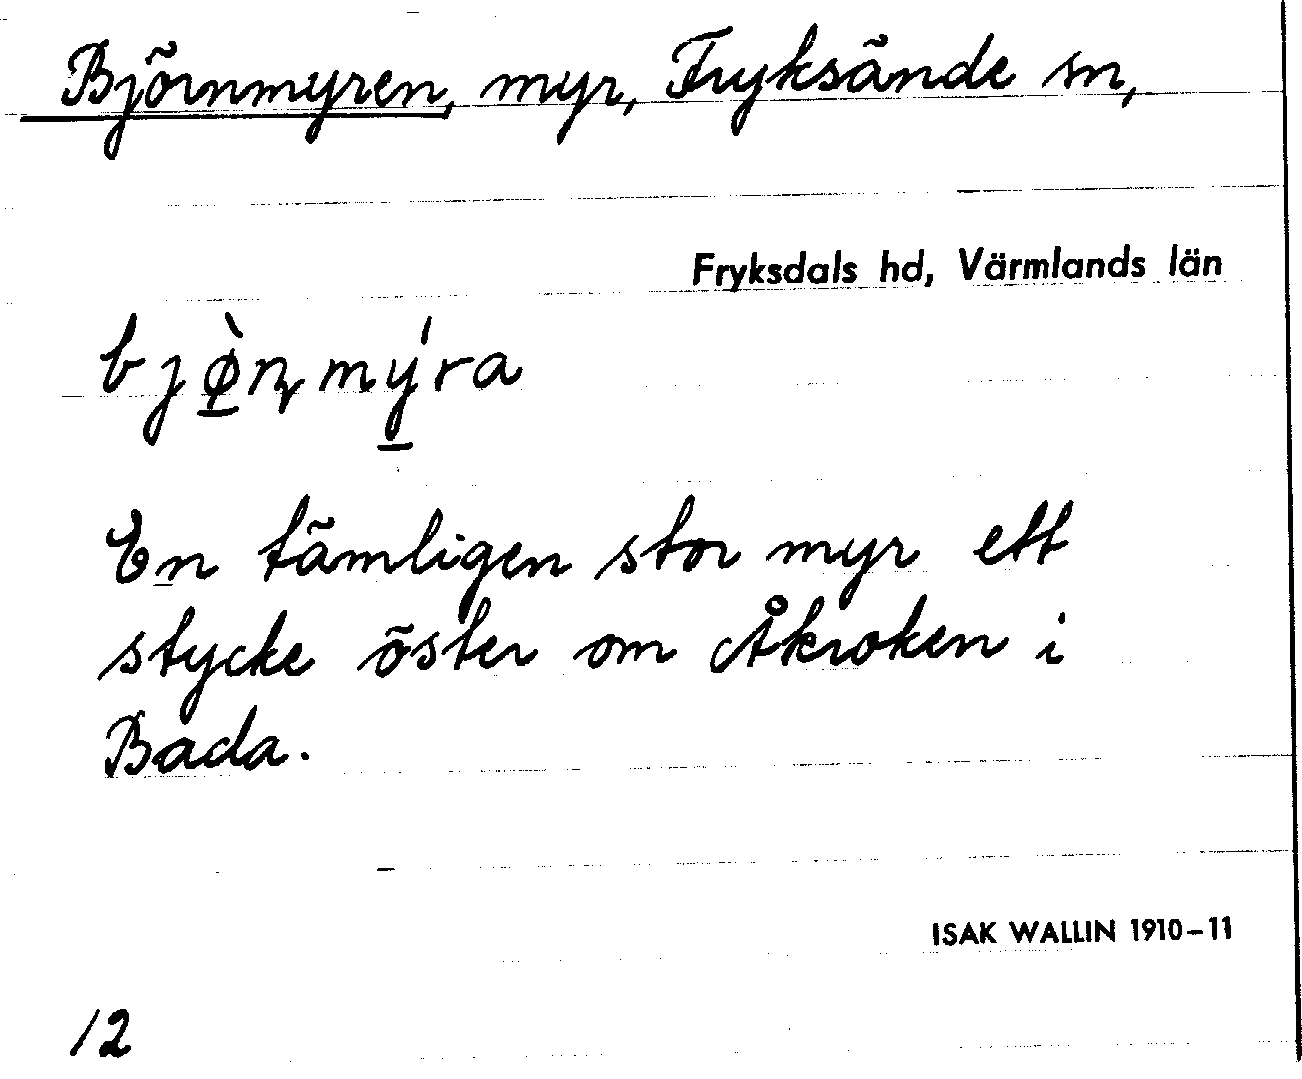 Björnmyren, myr, Fryksände sn,
Fryksdals hd, Värmlands län
bjø̱̀ɳmý̱ra
En tämligen stor myr ett
stycke öster om Åkroken i
Bada.
ISAK WALLIN 1910–11
12